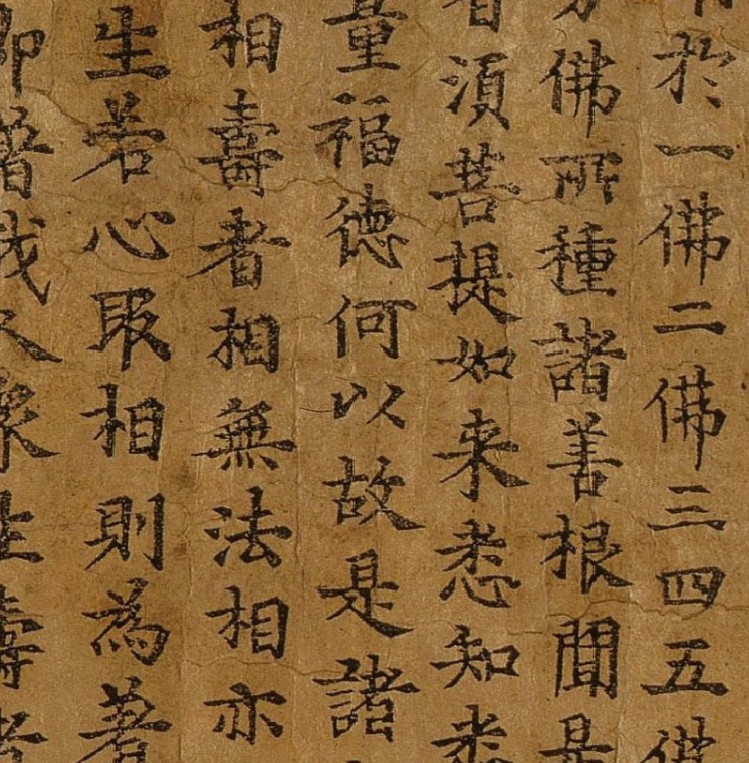 於一佛二佛三四五佛
佛所種諸善根聞是
者須菩提如来悉知悉
量福德何以故是諸
相壽者相無法相亦
生若心取相則為著
即著我人衆生壽者